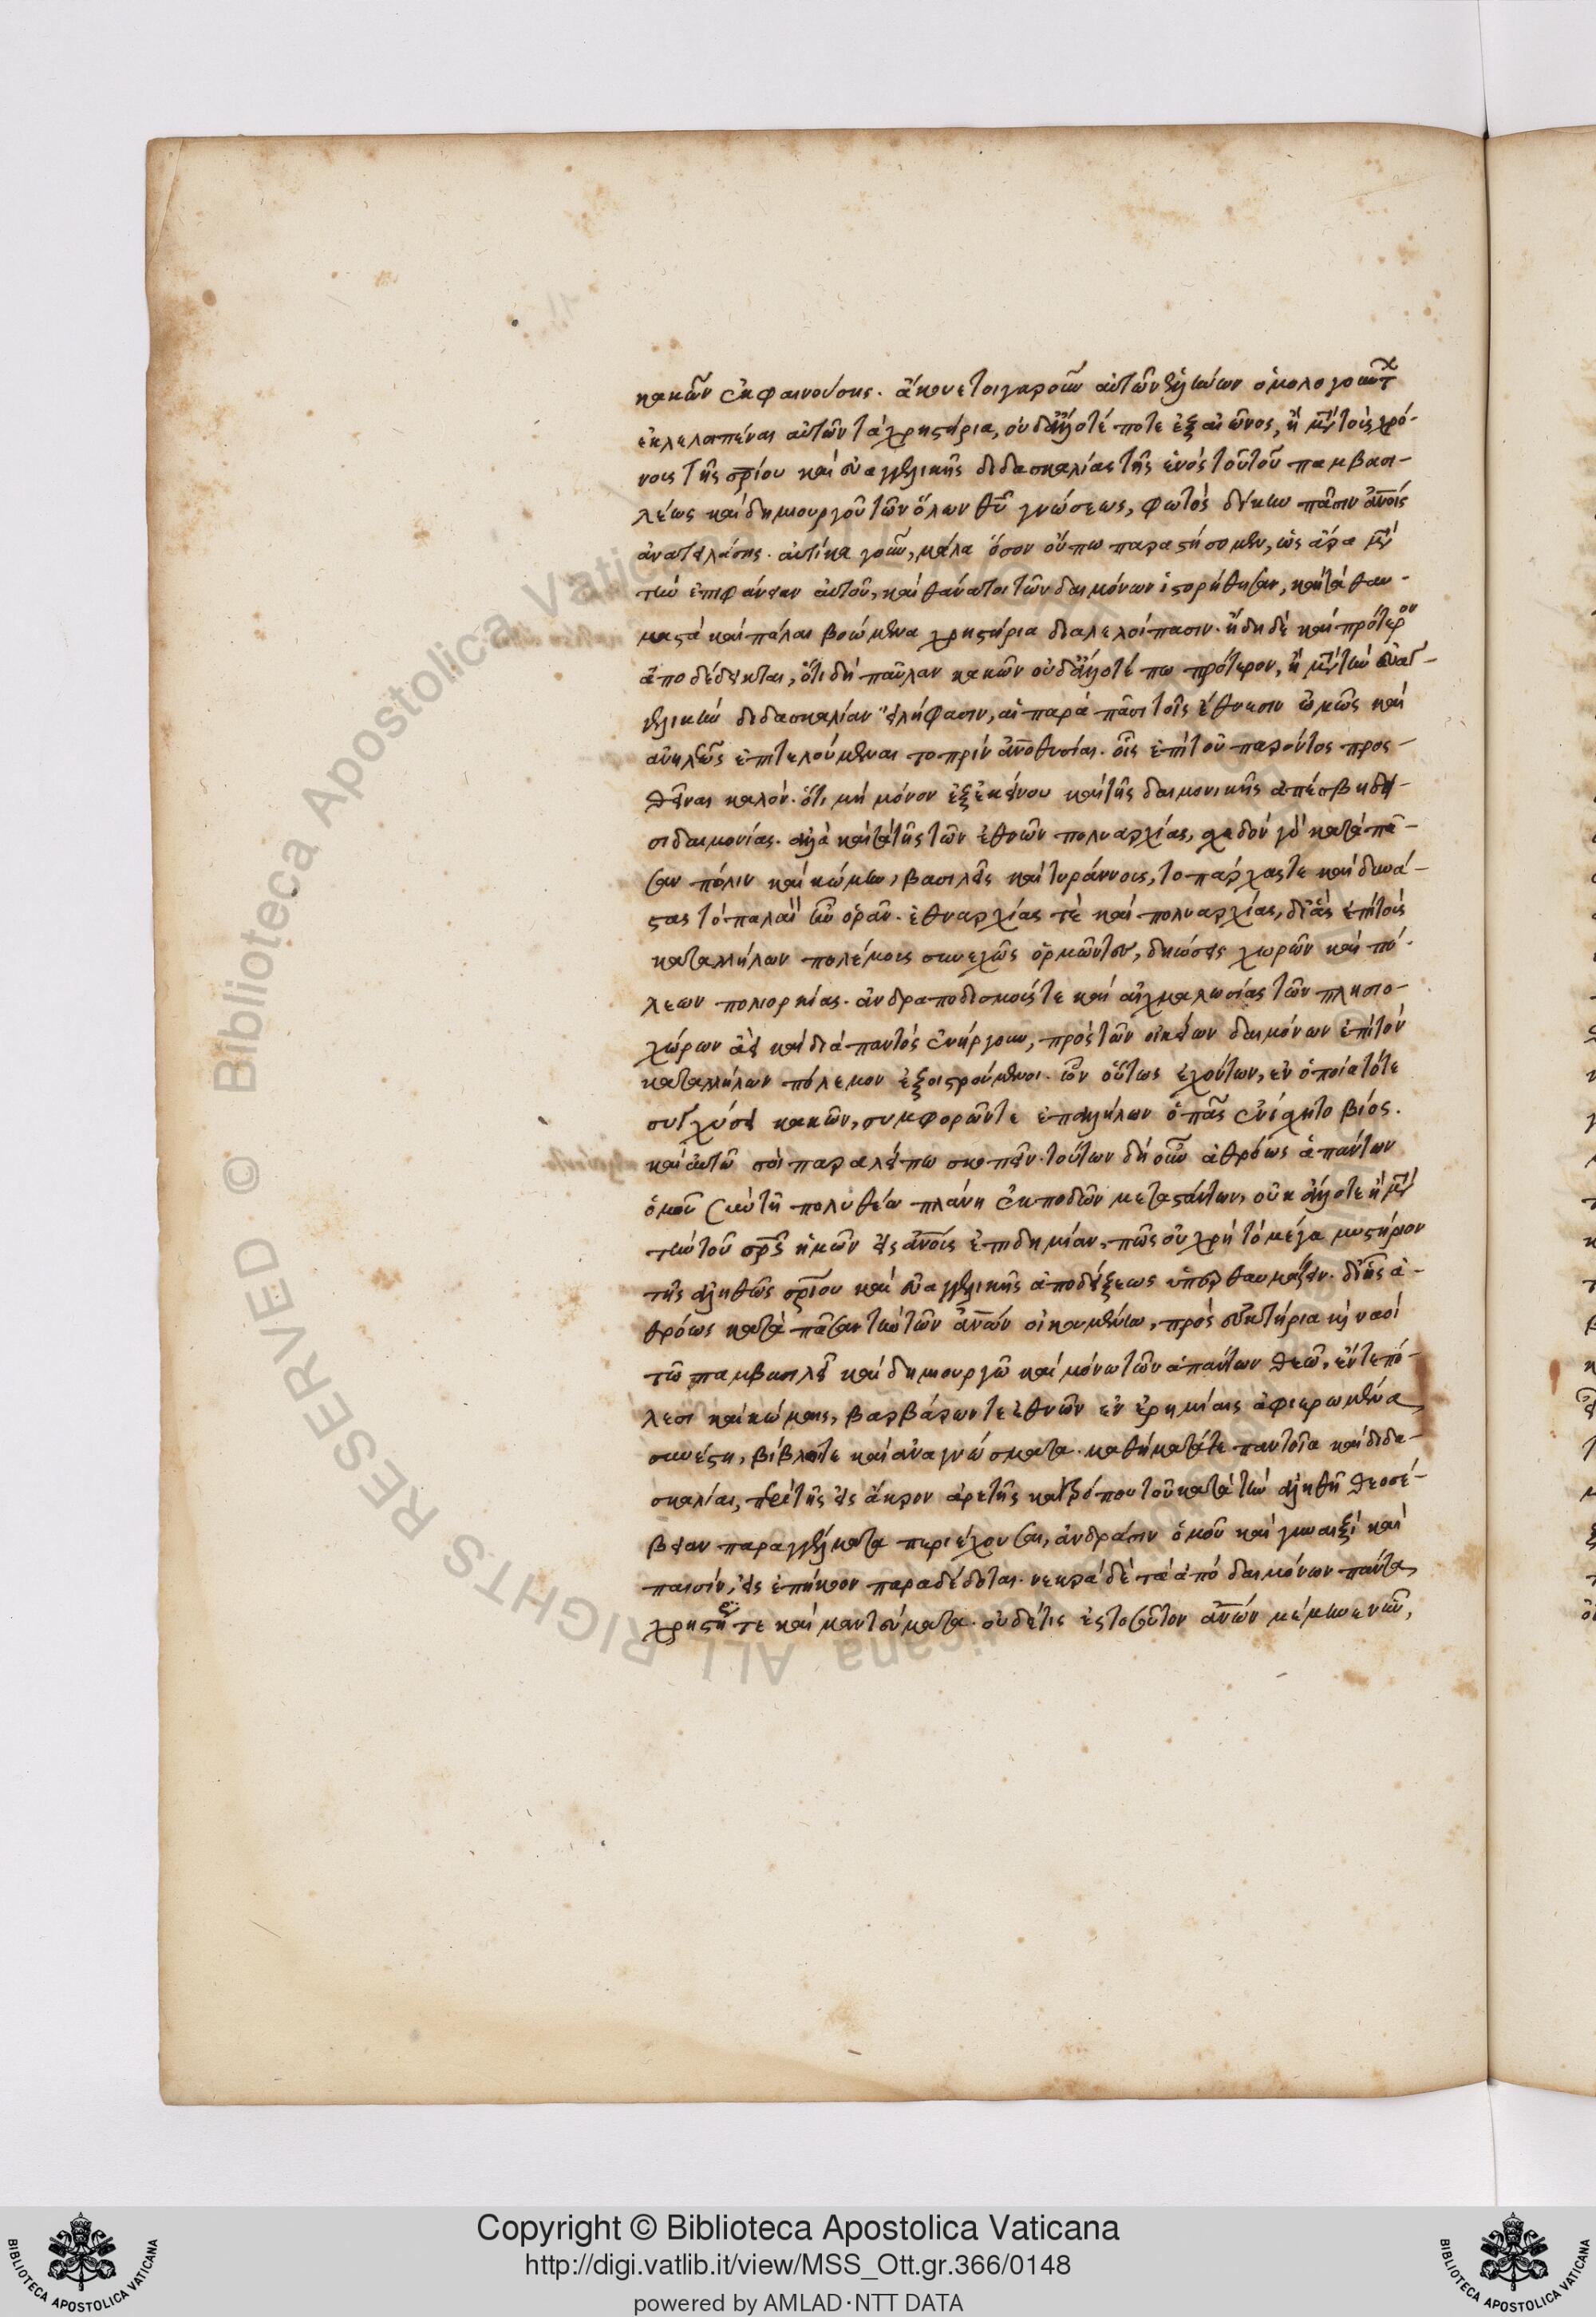 κακῶν ἐκφαινούσης. ἄκουε τοιγαροῦν αὐτῶν ἑλλήνων ὁμολογούντ
ἐκλελοιπέναι αὐτῶν τὰ χρηστήρια, οὐδ' ἄλλοτέ ποτε ἐξ αἰῶνος, ἢ μετὰ τοὺς χρό-
νους τῆς σρίου καὶ εὐαγγελικῆς διδασκαλίας τῆς ἑνὸς τοῦ τοῦ παμβασι-
λέως καὶ δημιουργοῦ τῶν ὅλων θυ γνώσεως, φωτὸς δίκην πᾶσιν ἀνοις
ἀνατειλάσης. αὐτίκα γοῦν, μάλα ὅσον οὔπω παραστήσομεν, ὡς ἄρα μετὰ
τὴν ἐπιφάνειαν αὐτοῦ, καὶ θάνατοι τῶν δαιμόνων ἱστορήθησαν, καὶ τὰ θαυ-
μαστὰ καὶ πάλαι βοώμενα χρηστήρια διαλελοίπασιν. ἤδη δὲ καὶ πρότερον
ἀποδέδεικται, ὅτι δὴ παῦλαν κακῶν οὐδ' ἄλλοτέ πω πρότερον, ἢ μετὰ τὴν εὐαγ-
γελικὴν διδασκαλίαν εἰλήφασιν, αἱ παρὰ πᾶσι τοῖς ἔθνεσιν ὠμῶς καὶ
ἀνηλεῶς ἐπιτελούμεναι τοπρὶν ἀνοθυσίαι. οἷς ἐπὶ τοῦ παρόντος προσ-
θεῖναι καλόν. ὅτι μὴ μόνον ἐξ ἐκείνου καὶ τῆς δαιμονικῆς ἀπέσβη δει-
σιδαιμονίας. ἀλλὰ καὶ τὰ τῆς τῶν ἐθνῶν πολυαρχίας, σχεδὸν γὰρ κατὰ πᾶ-
σαν πόλιν καὶ κώμην, βασιλεῖς καὶ τυράννους, τοπάρχας τε καὶ δυνά-
στας τὸ παλαιὸν ἦν ὁρᾶν. ἐθναρχίας τὲ καὶ πολυαρχίας, δι' ἃς ἐπὶ τοὺς
καταλλήλων πολέμους συνεχῶς ὁρμῶντο, δῃώσεις χωρῶν καὶ πό-
λεων πολιορκίας. ἀνδραποδισμούς τε καὶ αἰχμαλωσίας τῶν πλησιο-
χώρων ἀεὶ καὶ διὰ παντὸς ἐνήργουν, πρὸς τῶν οἰκείων δαιμόνων ἐπὶ τὸν
καταλλήλων πόλεμον ἐξοιστρούμενοι. ὧν οὕτως ἐχόντων, ἐν ὁποία τότε
συγχύσει κακῶν, συμφορῶν τε ἐπαλλήλων ὁ πᾶς ἐνίσχητο βίος.
καὶ αὐτῶ σοὶ παραλείπω σκοπεῖν. τούτων δὴ οὖν ἀθρόως ἁπάντων
ὁμοῦ σὺν τῆ πολυθέω πλάνη ἐκποδῶν μεταστάντων, οὐκ ἄλλοτε ἢ μετὰ
τὴν τοῦ σρς ἡμῶν εἰς ἀνους ἐπιδημίαν, πῶς οὐ χρὴ τὸ μέγα μυστήριον
τῆς ἀληθῶς σρίου καὶ εὐαγγελικῆς ἀποδείξεως ὑπερθαυμάζειν. δι' ἧς ἀ-
θρόως κατὰ πᾶσαν τὴν τῶν ἀνων οἰκουμένην, προσευκτήρια καὶ ναοὶ
τῶ παμβασιλεῖ καὶ δημιουργῶ καὶ μόνω τῶν ἁπάντων θεῶ, ἔν τε πό-
λεσι καὶ κώμαις, βαρβάρων τε ἐθνῶν ἐν ἐρημίαις ἀφιερωμένα
συνέστη, βίβλοι τε καὶ ἀναγνώσματα. μαθήματά τε παντοῖα καὶ διδα-
σκαλίαι, περὶ τῆς εἰς ἄκρον ἀρετῆς καὶ τρόπου τοῦ κατὰ τὴν ἀληθῆ θεοσέ-
βειαν παραγγέλματα περιέχουσαι, ἀνδράσιν ὁμοῦ καὶ γυναιξὶ καὶ
παισὶν, εἰς ἐπήκοον παραδέδοται. νεκρὰ δὲ τὰ ἀπὸ δαιμόνων πάντα
χρηστή τε καὶ μαντεύματα. οὐδέ τις ἐς τοσοῦτον ἀνων μέμηνε νῦν,
Copyright © Biblioteca Apostolica Vaticana
http://digi.vatlib.it/view/MSS_Ott.gr.366/0148
powered by AMLAD·NTT DATA